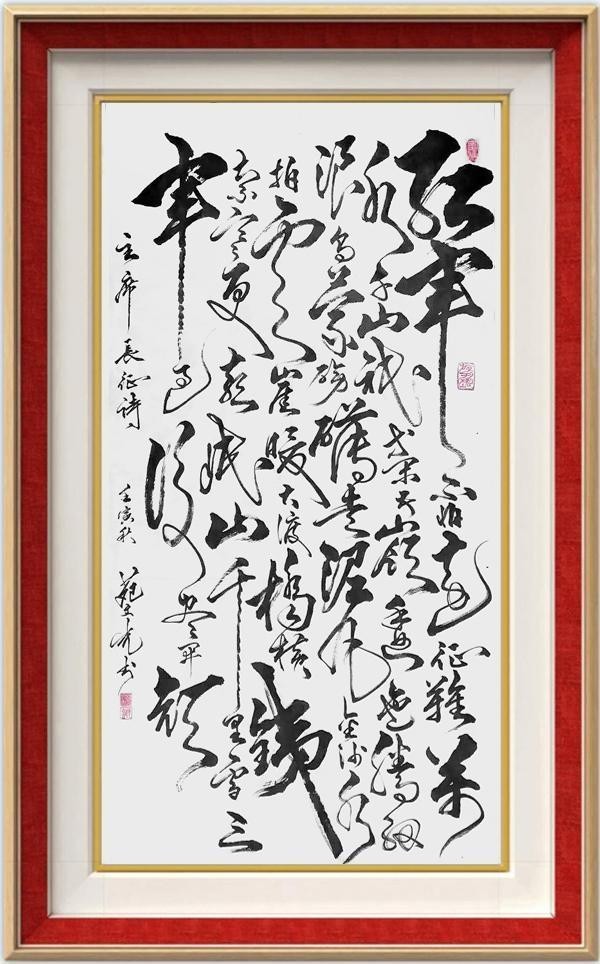 红军不怕远征難万
水千山祇等闲五嶺逶迤腾细
浪乌蒙磅礴走泥丸金沙水
拍云崖暖大渡橋横铁
索寒更喜岷山千里雪三
军过后尽开颜
主席长征诗 壬寅秋 书